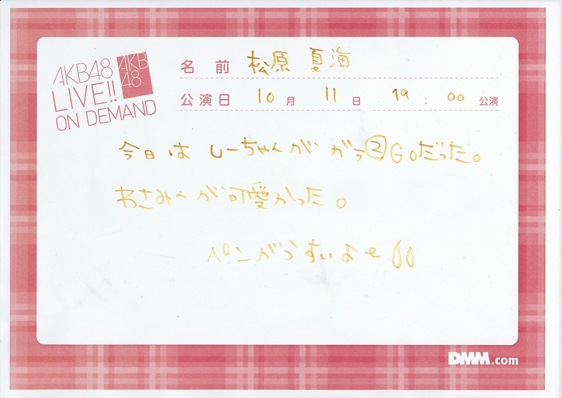 AKB48
LIVE!!
ON DEMAND
AKB
48
名前 松原 夏海
公演日 10月 11日 19:00 公演
今日は しーちゃんが がら②GOだった。
わさみんが可愛かった。
ペンがうすいよ
DMM.com